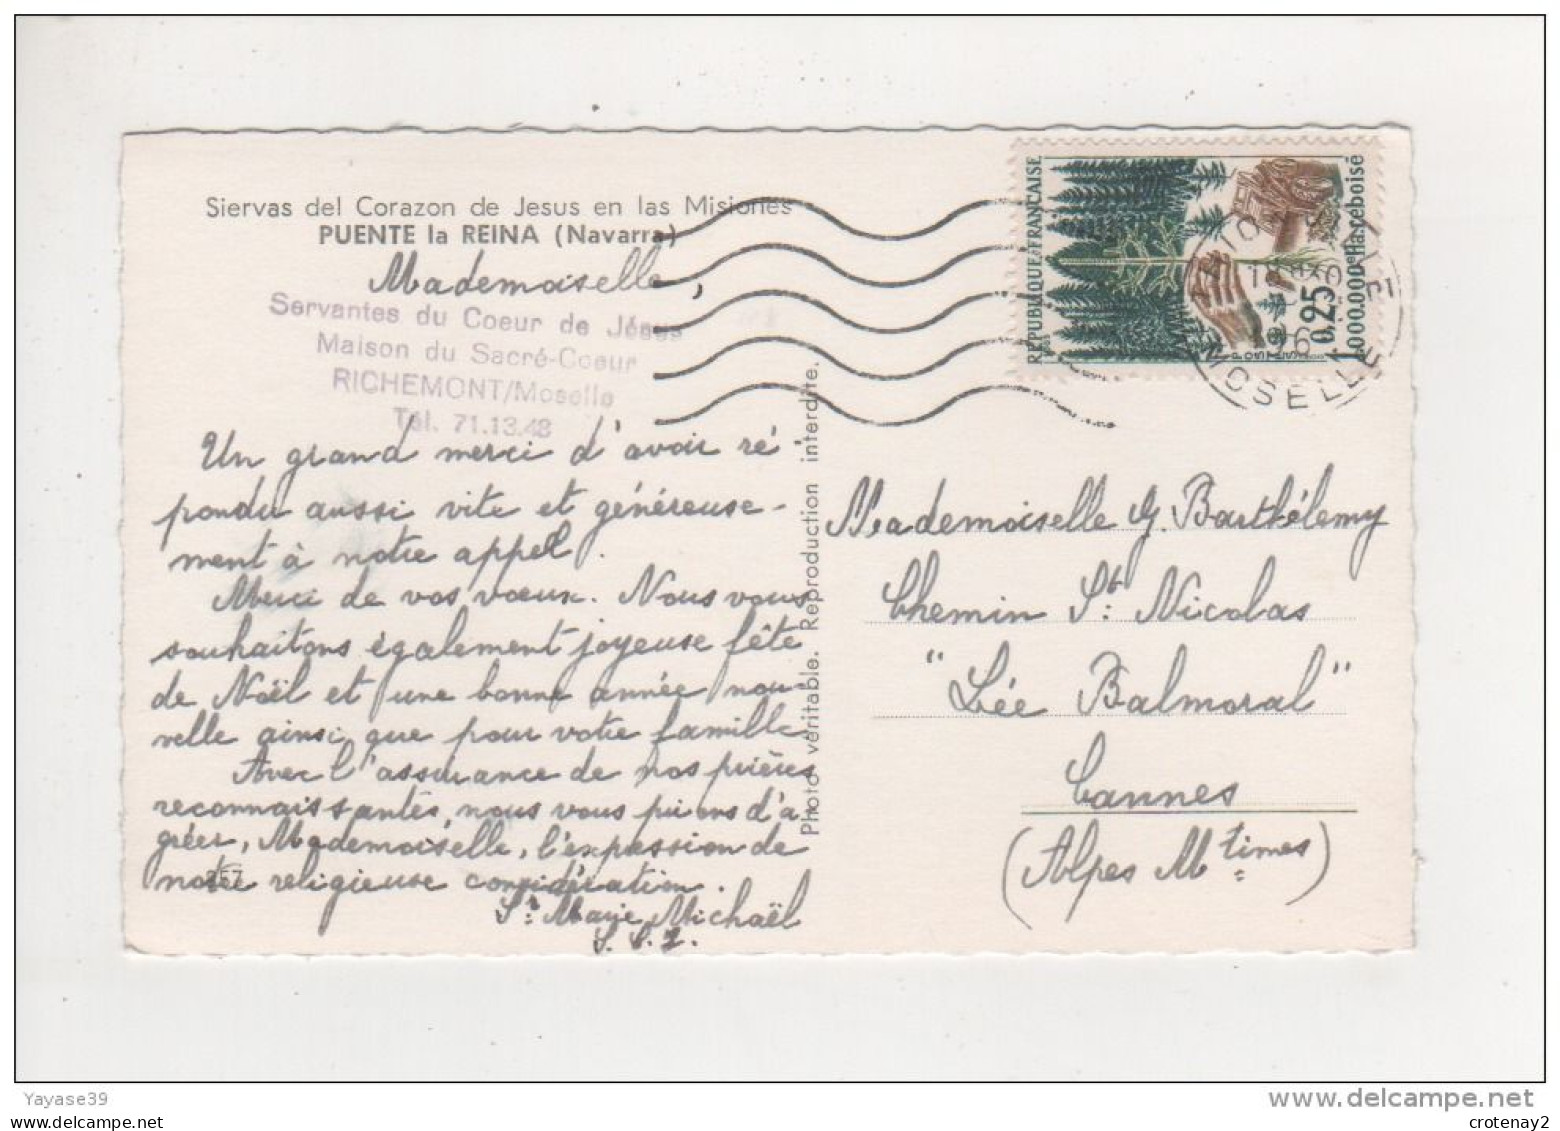 Siervas del Corazon de Jesus en las Misiones
PUENTE la REINA (Navarra)
Mademoiselle,
Servantes du Coeur de Jésus
Maison du Sacré-Coeur
RICHEMONT/Moselle
Tél. 71.13.48
Un grand merci d'avoir ré-
pondu aussi vite et généreuse-
ment à notre appel.
Merci de vos vœux. Nous vous
souhaitons également joyeuse fête
de Noël et une bonne année nou-
velle ainsi que pour votre famille.
Avec l'assurance de nos prières
reconnaissantes, nous vous prions d'a
gréer, Mademoiselle, l'expression de
notre religieuse considération.
Sr Marie Michaël
257
Photo véritable. Reproduction interdite.
REPUBLIQUE FRANCAISE
POSTES
0,25
1.000.000e Ha. reboisé
MOSELLE
Mademoiselle G. Barthélemy
Chemin St. Nicolas
"Lée Balmoral"
Cannes
(Alpes Mtimes)
Yayase39
www.delcampe.net
crotenay2